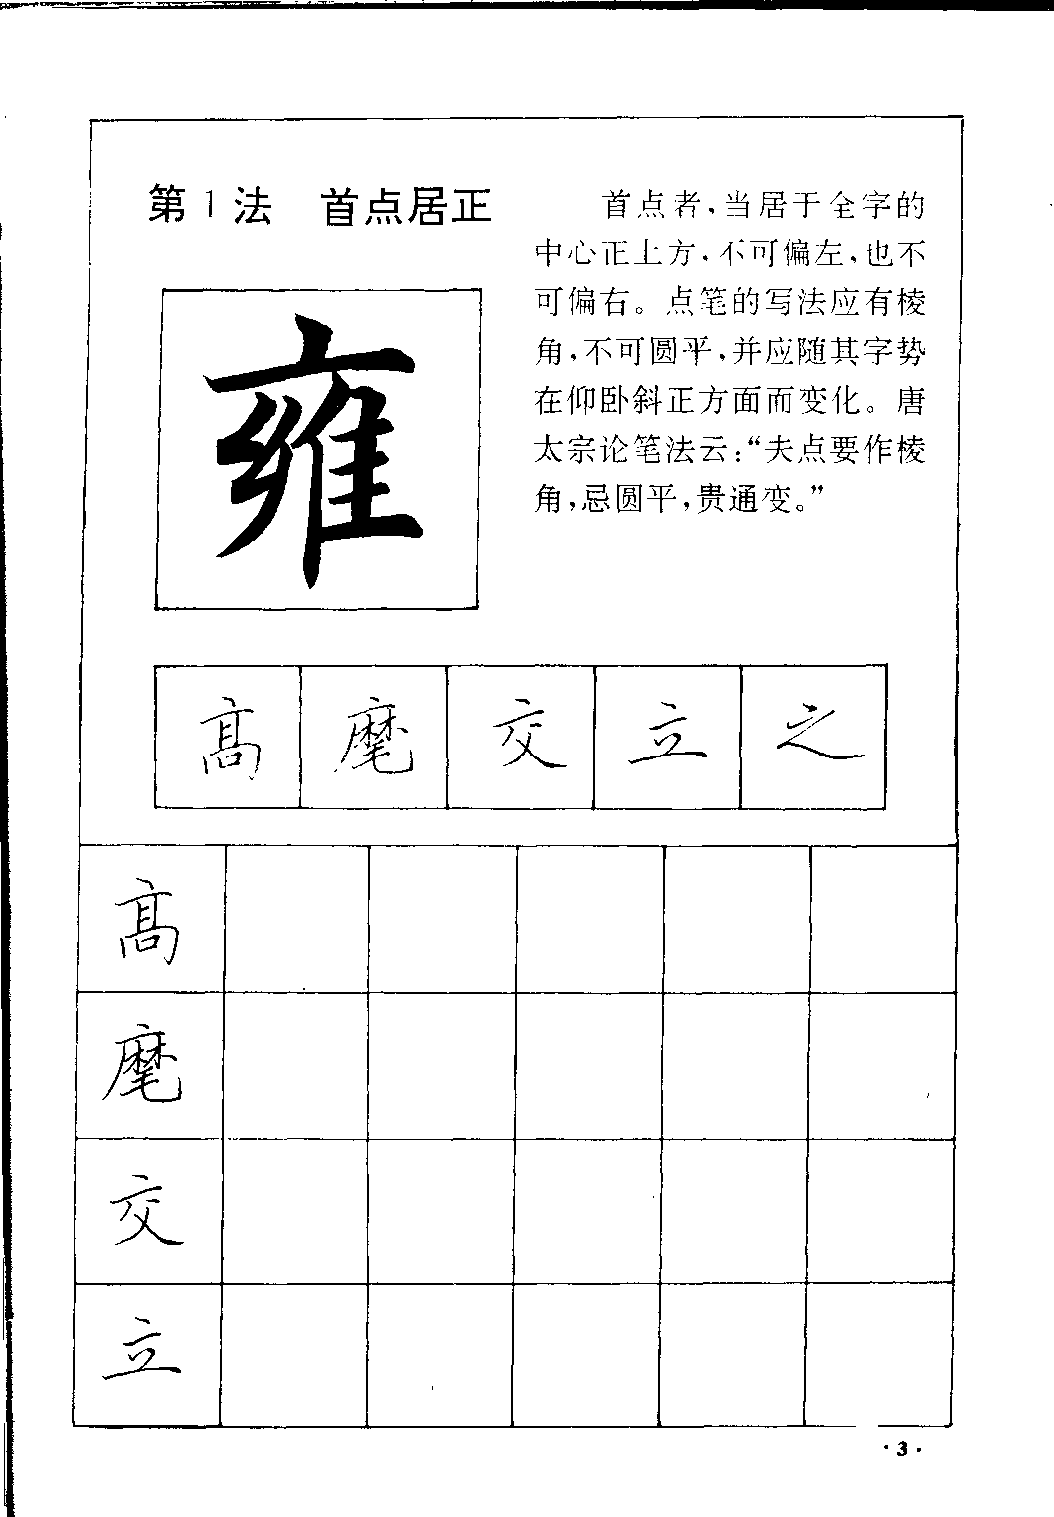 第1法 首点居正
首点者，当居于全字的
中心正上方，不可偏左，也不
可偏右。点笔的写法应有棱
角，不可圆平，并应随其字势
在仰卧斜正方面而变化。唐
太宗论笔法云：“夫点要作棱
角，忌圆平，贵通变。”
雍
高 麾 交 立 之
高
麾
交
立
·3·